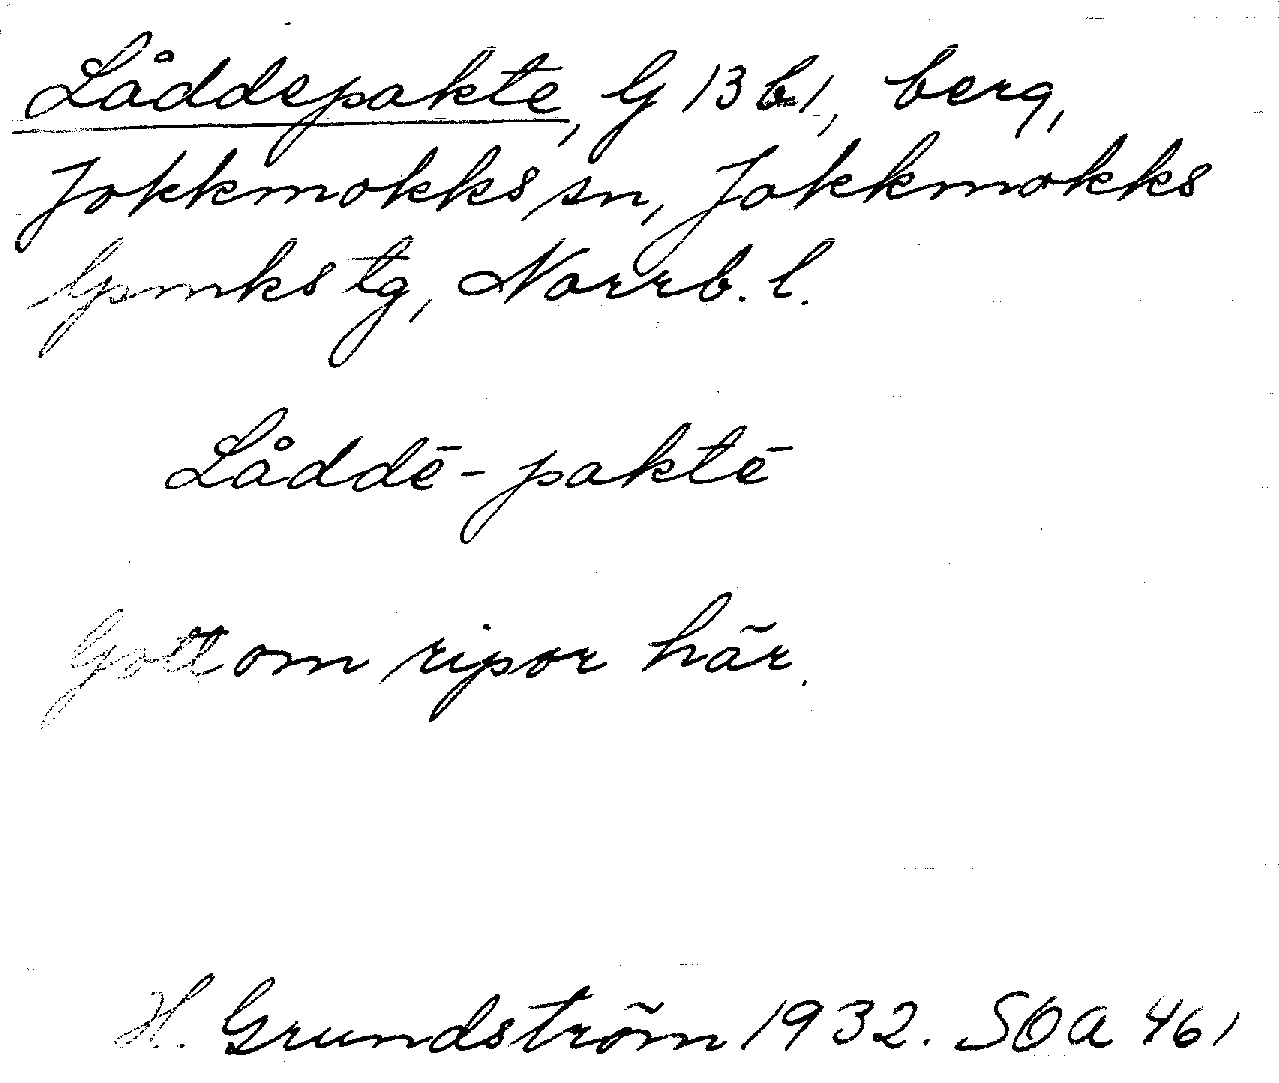 Låddepakte, G 13 b 1, berg,
Jokkmokks sn, Jokkmokks
lpmks tg, Norrb. l.
Låddē-paktē
Gott om ripor här.
H. Grundström 1932. SOA 461